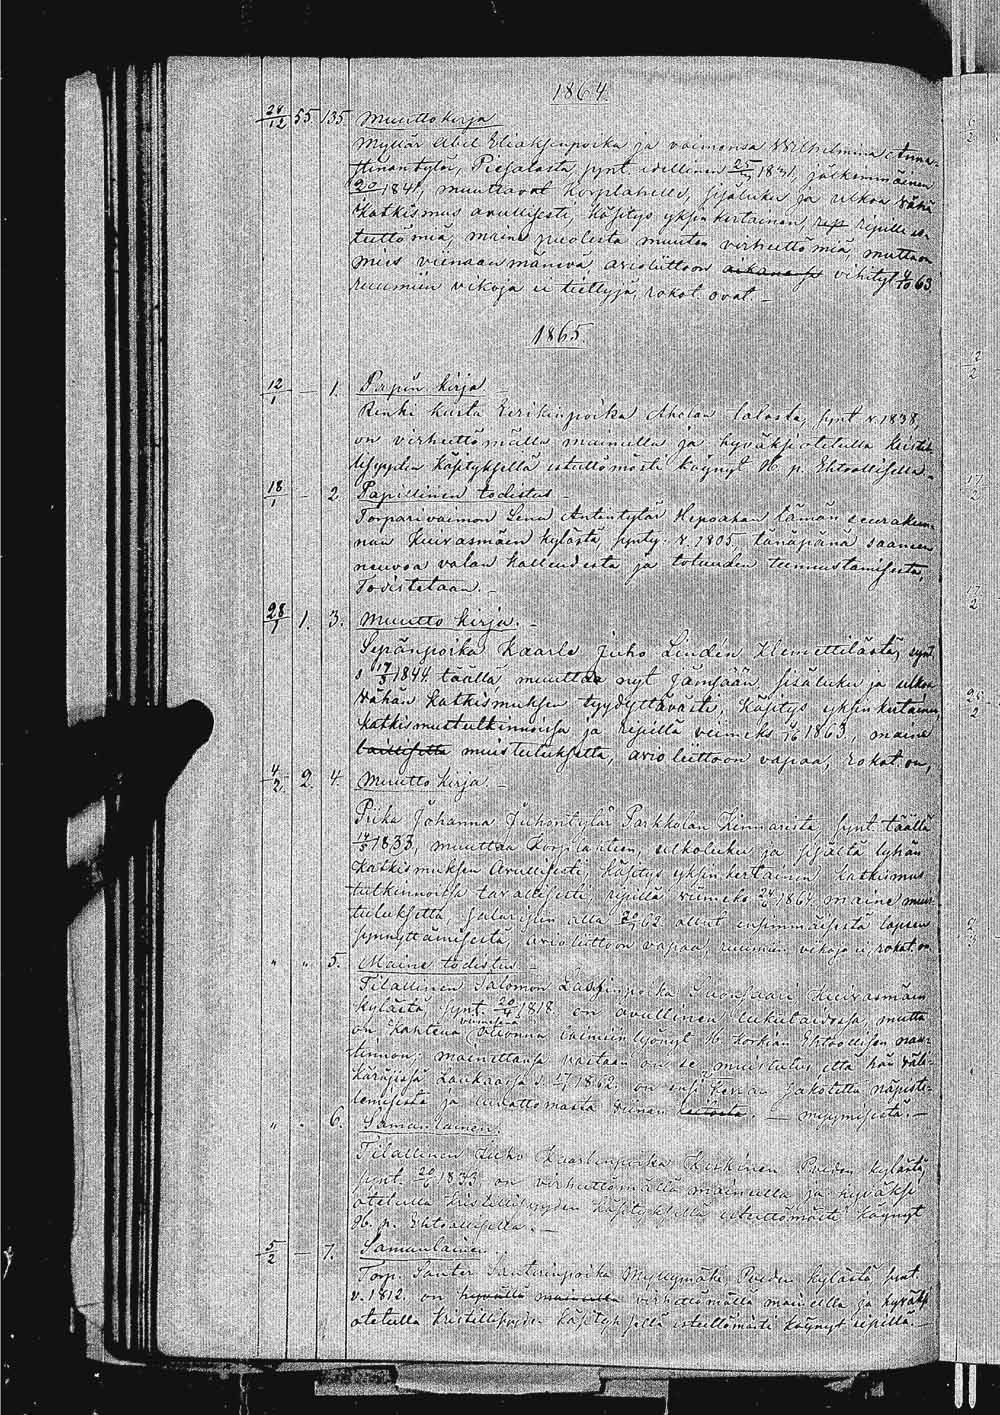 1864.
24/12 55 135. Muuttokirja
Myllär Abel Eliaksenpoika ja vaimonsa Wilhelmina Anna-
stiinantytär, Piesalasta, synt. edellinen 25/ 1831, jälkimmäinen
20/ 184, muuttavat Korpilahelle, sisäluku ja ulkoa Vähä
Katkismus avullisesti, käsitys yksinkertainen, rip ripille es-
teettömiä, maine puolesta muuten virheettömiä, muttaan
mies viinaan menevä, avioliittoon aikana ja vihityt 4/10 63.
ruumiin vikoja ei tiettyjä, rokot. ovat. –
1865
12/1 – 1. Papin kirja. –
Renki Kusta Eerikinpoika Aholan talosta, synt. v. 1838,
on virheettömällä maineella ja hyväksiotetulla Kristil-
lisyyden käsityksellä esteettömästi käynyt H. p. Ehtoollisella. –
18/1 – 2. Papillinen todistus –
Torparivaimon Lena Antintytär Hepoahon tämän seurakun-
nan Kuivasmäen kylästä, synty. v. 1805 tänäpänä saaneen
neuvoa valan kalleudesta ja totuuden tunnustamisesta,
Todistetaan. –
28/1 1. 3. Muutto kirja. –
Sepänpoika Kaarle Juho Lindén Klemettilästä, synt.
s 17/3 1844 täällä, muuttaa nyt Jämsään, sisäluku ja ulkoa
Vähän Katkismuksen tyydyttävästi, käsitys yksinkertainen,
katkismustutkinnoissa ja ripillä viimeks 1863, maine
laillisetta muistutuksetta, avioliittoon vapaa, rokot. on,
4/2. 2. 4. Muutto kirja. –
Piika Johanna Juhontytär Parkkolan Kinnarista, synt. täällä
1833, muuttaa Korpilahteen, ulkoluku ja sisältä lyhän
Katkismuksen Avullisesti, käsitys yksinkertainen Katkismus
tutkinnoissa tavallisesti, ripillä viimeks 24/ 1864 maine muis-
tutuksetta, alla 62 ollut ensimmäisestä lapsen
synnyttämisestä, avioliittoon vapaa, ruumiin vikoja ei, rokot. on.
" " 5. Maine todistus. –
Tilallinen Salomon Suonsaari Kuivasmäen
kylästä, synt. 20/4 1818 on avullinen lukutaidossa, mutta
on kahtena viimeisenä vuonna laimiinlyönyt H. Korkian Ehtoollisen nau-
tinnon; mainettansa vastaan on se muistutus että hän väli-
käräjissä Laukaassa s. 1862. on ensi kerran sakotettu näpiste-
lemisestä ja luvattomasta viinan – myymisestä. –
" " 6. Samanlainen.
Tilallinen Juho Kaarlenpoika Keskinen Pieden kylästä,
synt. 20/ 1833, on virheettömällä maineella ja hyväksi
otetulla kristillisyyden käsityksellä esteettömästi käynyt
H. p. Ehtoollisella. –
5/2 – 7. Samanlainen
Torp. Santeri Santerinpoika Myllymäki Pieden kylästä, synt.
v. 1812. on hyvällä maineella virheettömällä maineella ja hyväksi
otetulla kristillisyyden käsityksellä esteettömästi käynyt ripillä. –